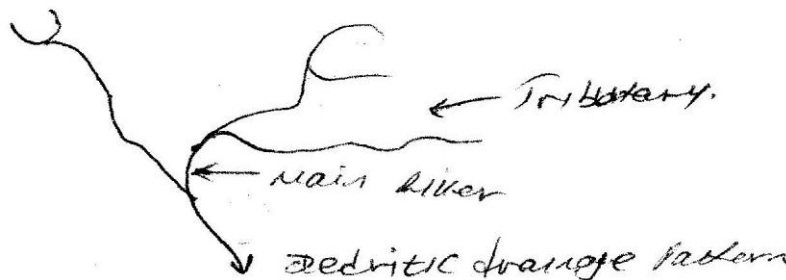 Tributary.
Main River
Dedritic drainage Pattern